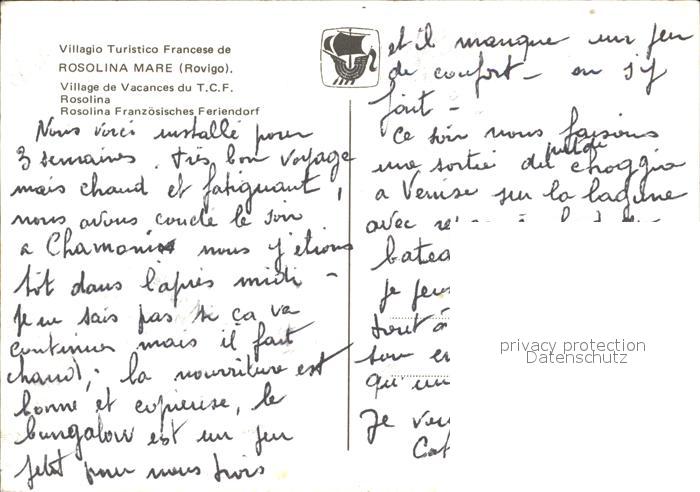 Villagio Turistico Francese de
ROSOLINA MARE (Rovigo).
Village de Vacances du T.C.F.
Rosolina
Rosolina Französisches Feriendorf
Nous voici installé pour
3 semaines. très bon voyage
mais chaud et fatiguant,
nous avons couché le soir
a Chamonix nous y etions
tôt dans l'après midi -
Je ne sais pas si ça va
continuer mais il fait
chaud, la nourriture est
bonne et copieuse, le
bungalow est un peu
petit pour nous trois
et il manque un peu
de confort - on s'y
fait -
Ce soir nous faisons
une sortie de choggia
a Venise sur la lagune
avec
batea
Je
tout à
son
qu'un
Je
privacy protection
Datenschutz